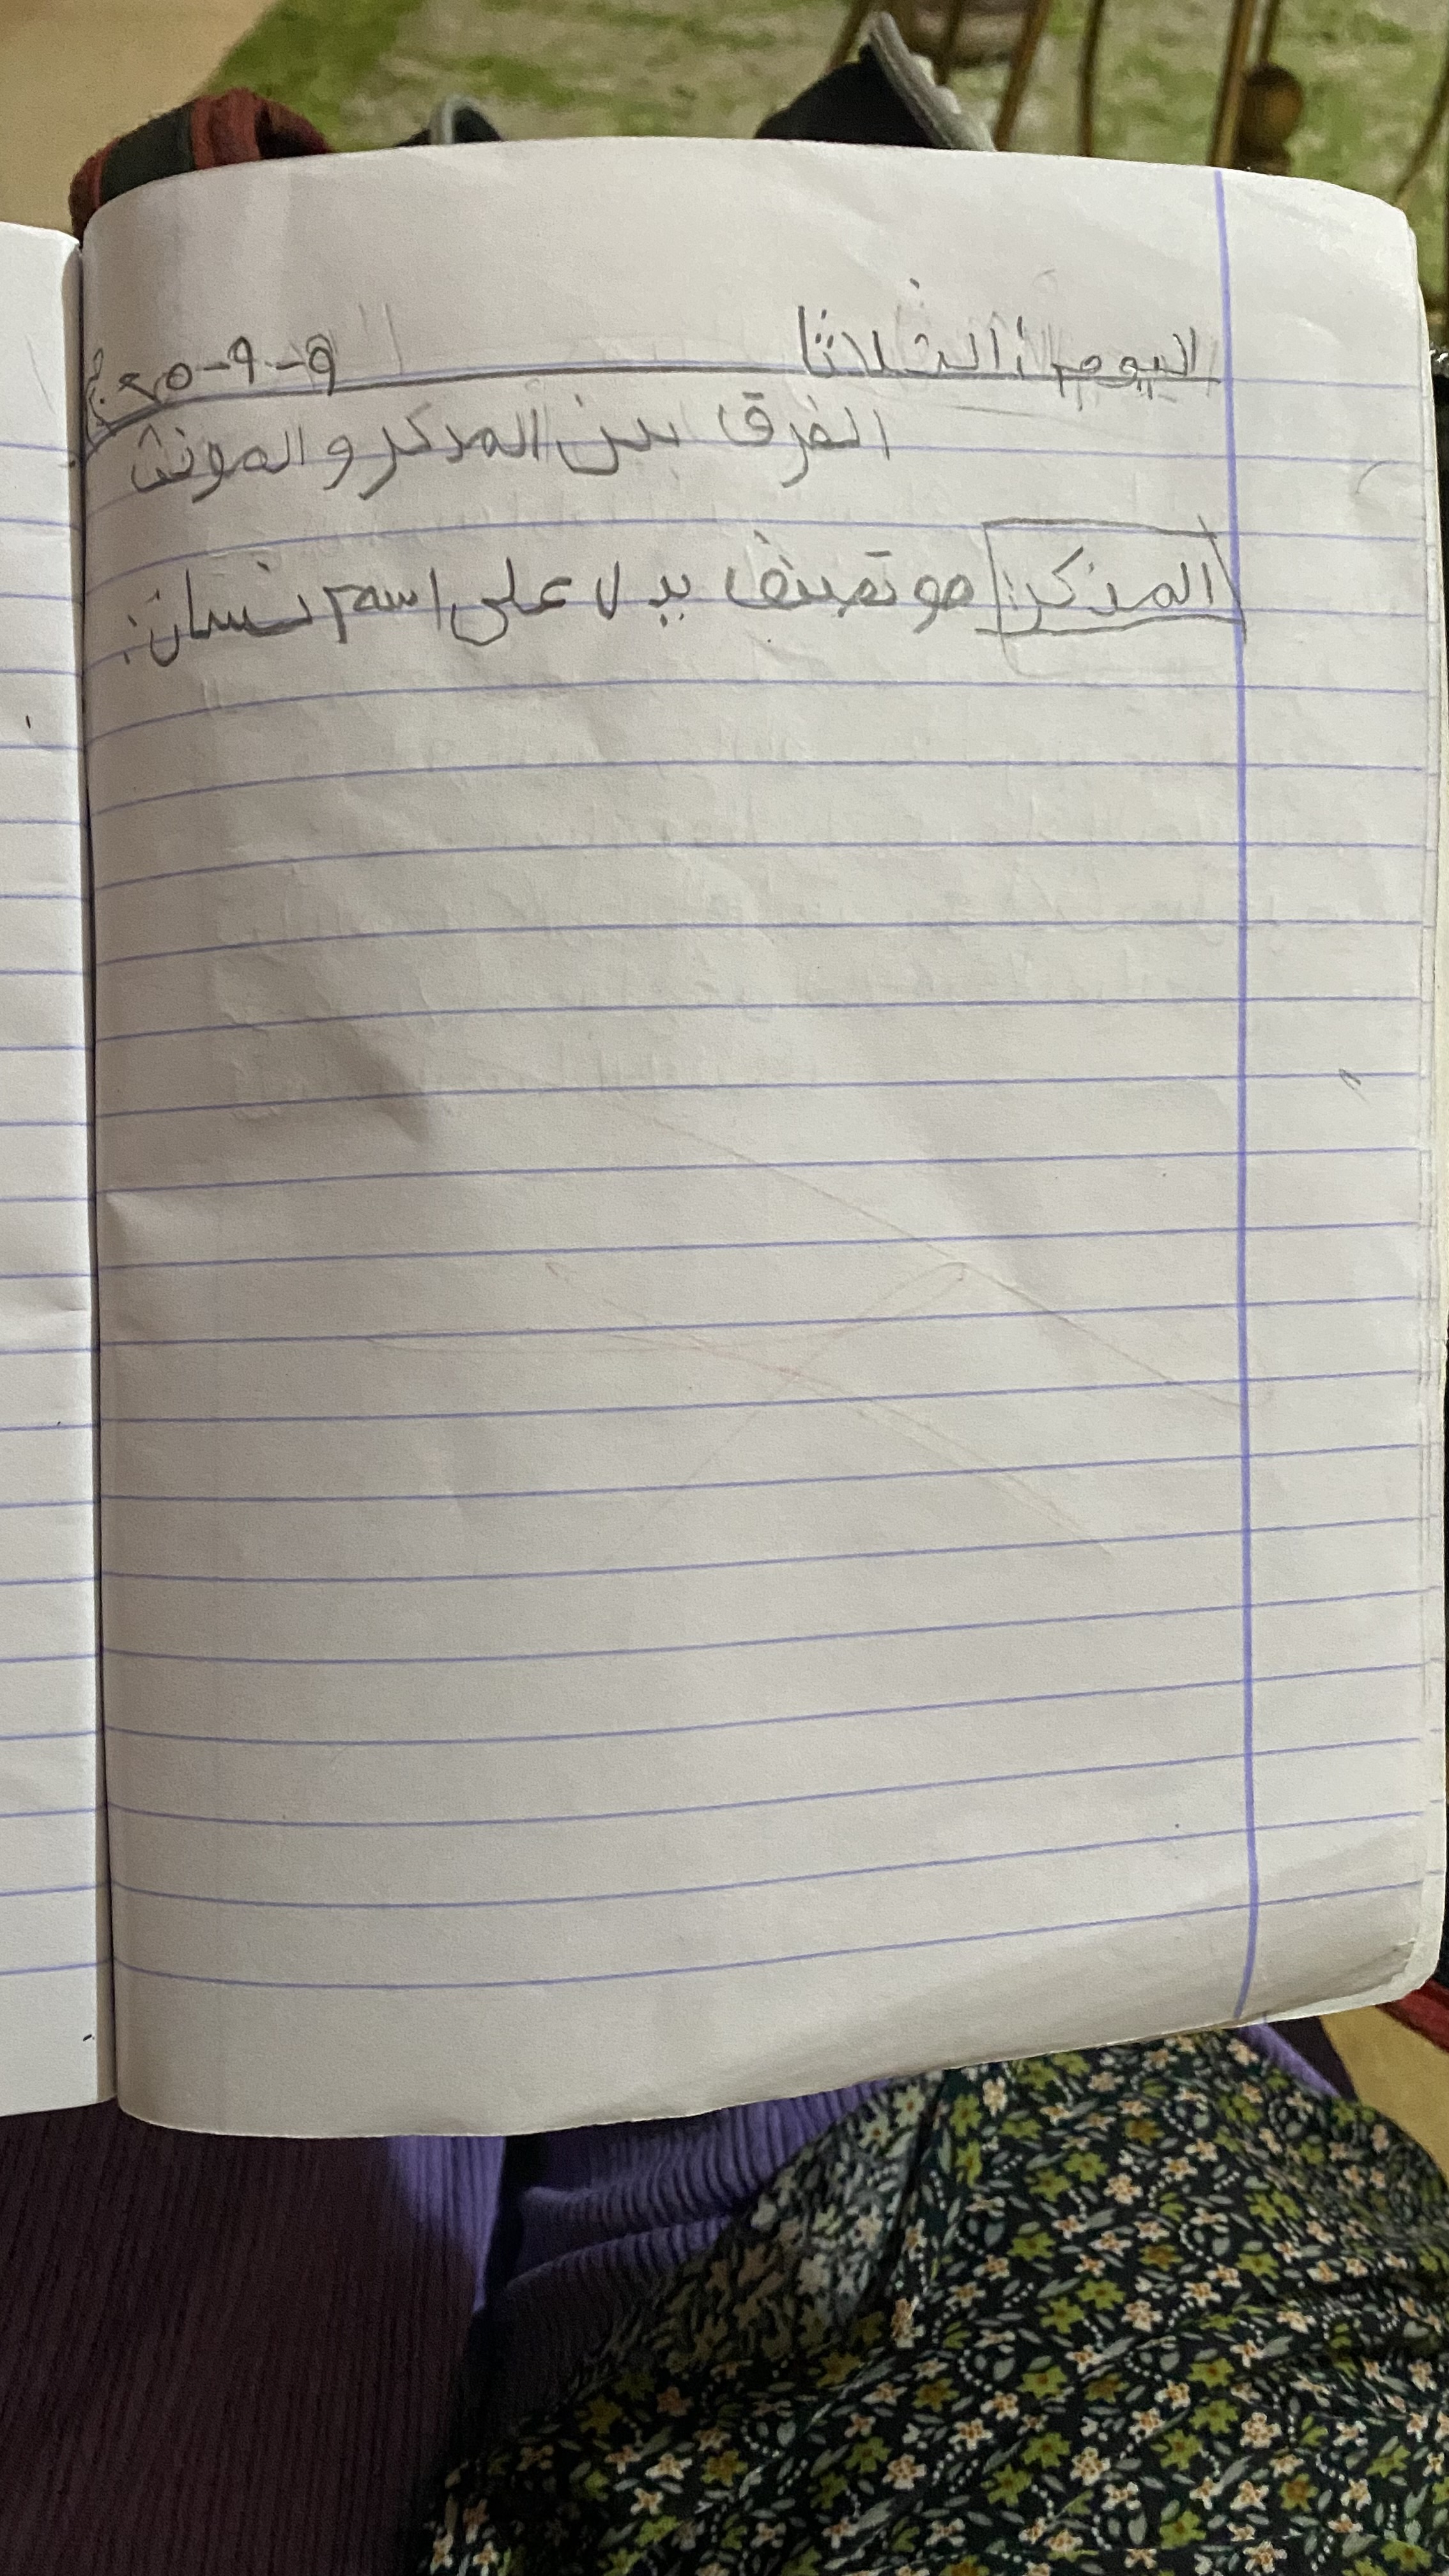 اليوم: الثلاثا ٩-٩-٢٠٢٥
الفرق بين المذكر و المونث
المذكر: هو تصنف يدل على اسم نسان: